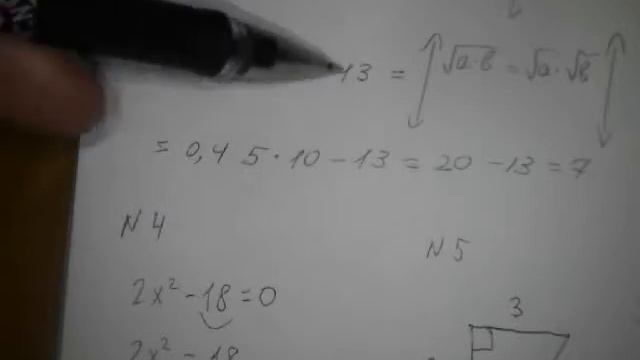 13 = √a·b = √a · √b
= 0,4 5 · 10 - 13 = 20 - 13 = 7
N 4
N 5
2x² - 18 = 0
3
2x² - 18